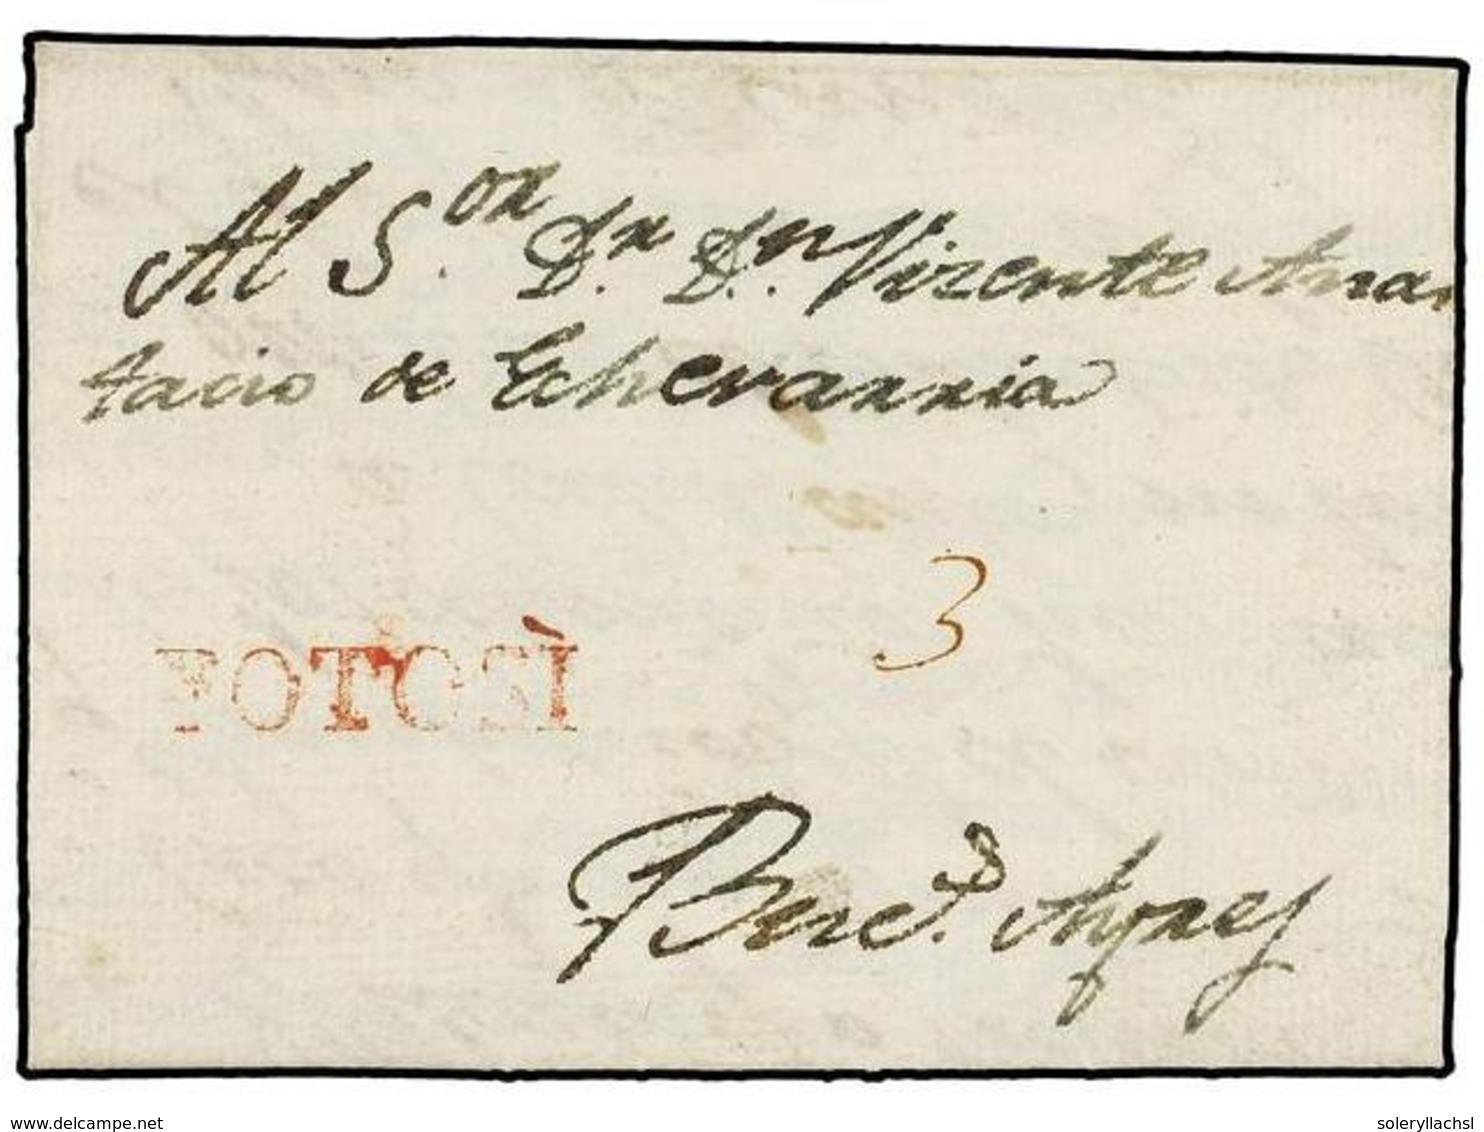 Al S.or D.r D.n Vizente Anas
tacio de Echevarria
3
POTOSÌ
Buen.s Ayres
www.delcampe.net
soleryllachsl